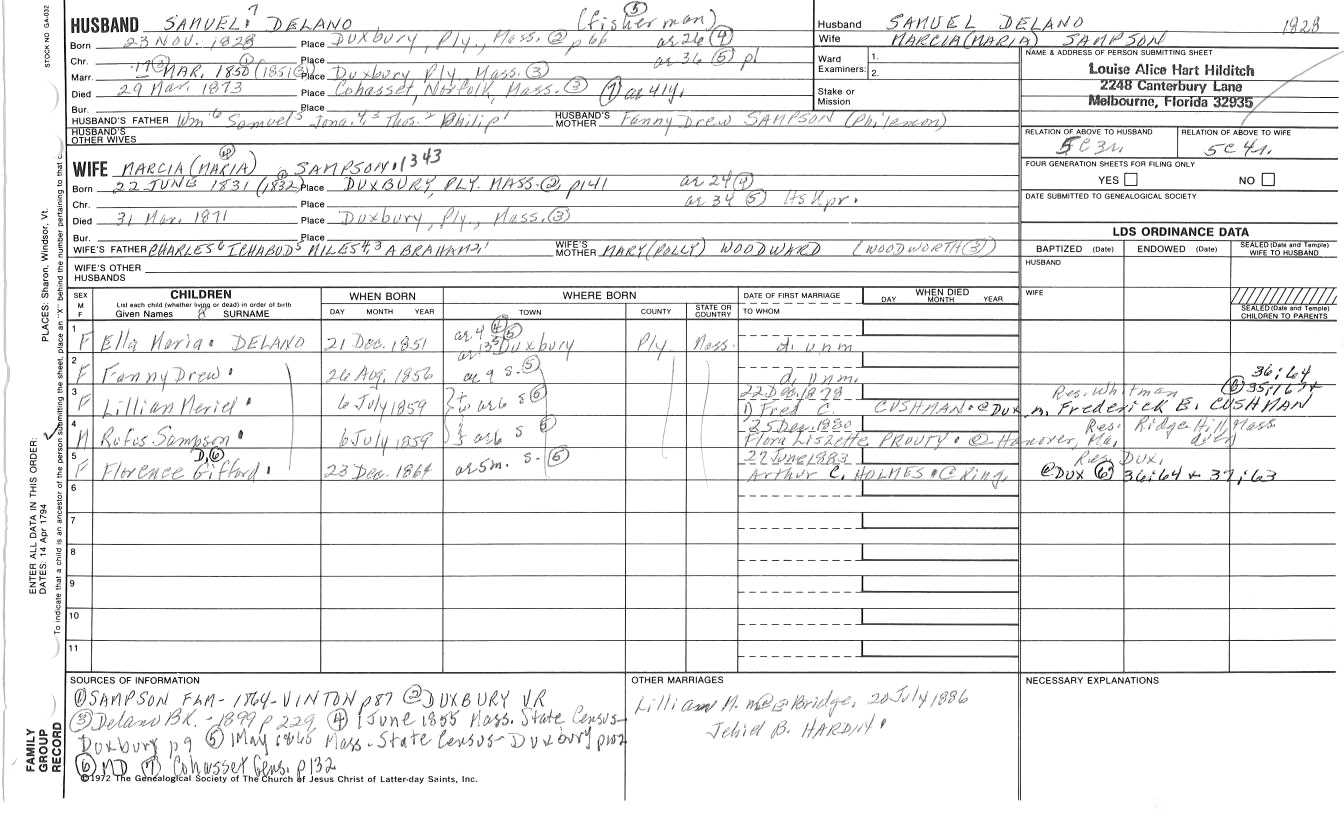 STOCK NO. GA-032
PLACES: Sharon, Windsor, Vt.
ENTER ALL DATA IN THIS ORDER:
DATES: 14 Apr 1794
To indicate that a child is an ancestor of the person submitting the sheet, place an "X" behind the number pertaining to that c
FAMILY GROUP RECORD
HUSBAND SAMUEL 7 DELANO (fisherman) ⑤
Born 23 NOV. 1828 Place Duxbury, Ply., Mass. ② p66 ar 26 ④
Chr. Place ar 36 ⑤ p1
Marr. 17 ② MAR. 1850 (1851 Place Duxbury, Ply., Mass. ③
Died 29 Mar. 1873 Place Cohasset, Norfolk, Mass. ③ ⑦ ar 41y.
Bur. Place
HUSBAND'S FATHER Wm 6 Samuel 5 Jona. 4,3 Thos. 2 Philip 1 HUSBAND'S MOTHER Fanny Drew SAMPSON (Philemon)
HUSBAND'S OTHER WIVES
WIFE MARCIA (MARIA) ④ SAMPSON. 1343
Born 22 JUNE 1831 (1832 ① Place DUXBURY, PLY. MASS. ② p141 ar 24 ④
Chr. Place ar 34 ⑤ Hskpr.
Died 31 Mar. 1871 Place Duxbury, Ply., Mass. ③
Bur. Place
WIFE'S FATHER CHARLES 6 ICHABOD 5 MILES 4,3 ABRAHAM 2,1 WIFE'S MOTHER MARY (POLLY) WOODWARD (WOODWORTH ③)
WIFE'S OTHER HUSBANDS
Husband SAMUEL DELANO 1828
Wife MARCIA (MARIA) SAMPSON
Ward Examiners: 1. 2.
Stake or Mission
NAME & ADDRESS OF PERSON SUBMITTING SHEET
Louise Alice Hart Hilditch
2248 Canterbury Lane
Melbourne, Florida 32935
RELATION OF ABOVE TO HUSBAND RELATION OF ABOVE TO WIFE
5C3r. 5C4r.
FOUR GENERATION SHEETS FOR FILING ONLY
YES NO
DATE SUBMITTED TO GENEALOGICAL SOCIETY
LDS ORDINANCE DATA
BAPTIZED (Date) ENDOWED (Date) SEALED (Date and Temple) WIFE TO HUSBAND
HUSBAND
WIFE
SEALED (Date and Temple) CHILDREN TO PARENTS
SEX M F CHILDREN List each child (whether living or dead) in order of birth Given Names SURNAME WHEN BORN DAY MONTH YEAR WHERE BORN TOWN COUNTY STATE OR COUNTRY DATE OF FIRST MARRIAGE TO WHOM WHEN DIED DAY MONTH YEAR
1 F Ella Maria. DELANO 21 Dec. 1851 ar 4 ④ ar 13 s ⑤ Duxbury Ply Mass. d. unm
2 F Fanny Drew. 26 Aug. 1856 ar 9 s. ⑤ d. unm. 36:64
3 F Lillian Meriel. 6 July 1859 ar 6 s ⑤ 22 Dec. 1878 Res. Whitman ⑥ 35:167+
1) Fred C. CUSHMAN. @ Dux m. Frederick E. CUSHMAN
4 M Rufus Sampson. 6 July 1859 ar 6 s ⑤ 25 Dec. 1880 Res. Ridge Hill, Mass.
Flora Liszette PROUTY. @ Hanover, Ma.
5 F Florence Gifford. D,⑥ 23 Dec. 1864 ar 5m. s. ⑤ 27 June 1883 Res. Dux.
Arthur C. HOLMES. @ King. @ DUX ⑥ 36:64 + 37:63
6
7
8
9
10
11
SOURCES OF INFORMATION
① SAMPSON FAM - 1864 - VINTON p87 ② DUXBURY VR
③ Delano BK. - 1899 p 229 ④ 1 June 1855 Mass. State Census-
Duxbury p9 ⑤ 1 May 1865 Mass. State Census - Duxbury p102
⑥ MD ⑦ Cohasset Gens. p132
©1972 The Genealogical Society of The Church of Jesus Christ of Latter-day Saints, Inc.
OTHER MARRIAGES
Lillian M. m @ E Bridge. 20 July 1886
Jehiel B. HARDING.
NECESSARY EXPLANATIONS